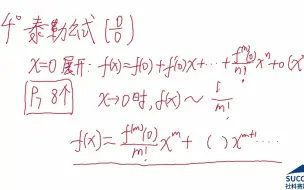 4° 泰勒公式 (0/0)
x=0 展开: f(x)=f(0)+f(0)x+⋯+f⁽ⁿ⁾(0)/n! xⁿ+0(x
P, 8个 x→0时, f(x)~ f/m!
f(x)= f⁽ᵐ⁾(0)/m! xᵐ + ( )xᵐ⁺¹ ⋯⋯
SUCC
社科赛